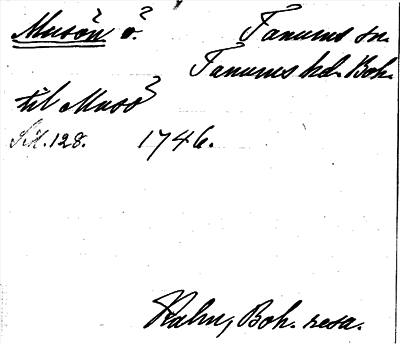 Musön ö. Tanums sn.
Tanums hd. Boh.
til Musö
S. 128. 1746.
Kalm, Boh. resa.